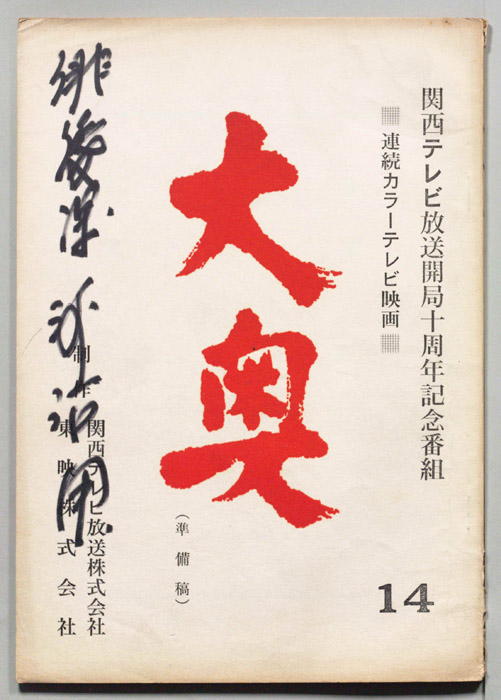 関西テレビ放送開局十周年記念番組
連続カラーテレビ映画
大奥
(準備稿)
14
制作
関西テレビ放送株式会社
東映株式会社